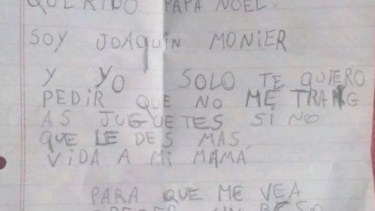 QUERIDO PAPA NOEL:
SOY JOAQUIN MONIER
Y YO SOLO TE QUIERO
PEDIR QUE NO ME TRAIG
AS JUGUETES SI NO
QUE LE DES MAS
VIDA A MI MAMA
PARA QUE ME VEA
CRECER UN BESO